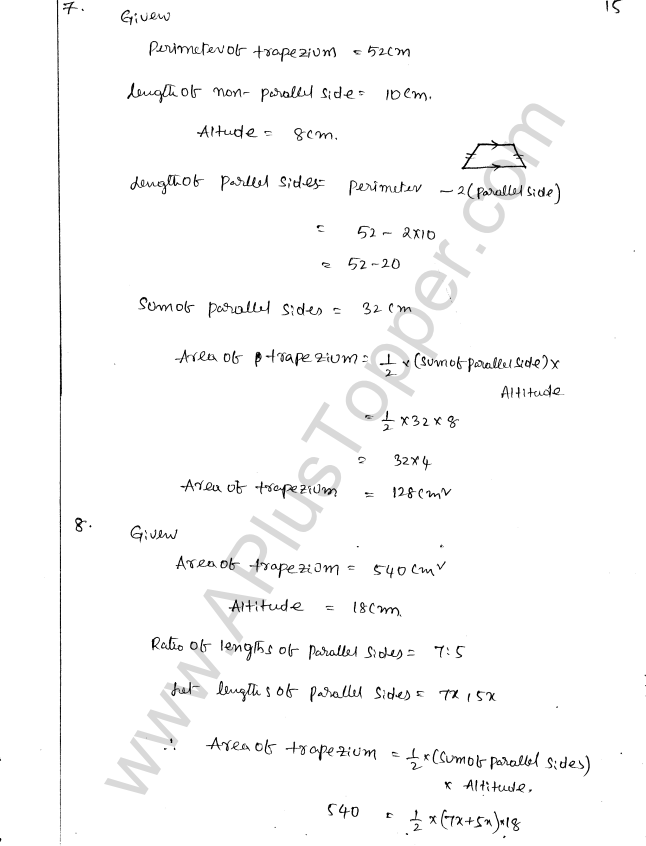 7.
15
Given
Perimeter of trapezium = 52cm
Length of non-parallel side = 10cm.
Altude = 8cm.
Length of parllel sides = perimeter - 2(parallel side)
= 52 - 2×10
= 52-20
Sum of parallel sides = 32 cm
Area of trapezium = 1/2 × (sum of parallel side) ×
Altitude
= 1/2 × 32 × 8
= 32×4
Area of trapezium = 128cm²
8.
Given
Area of trapezium = 540cm²
Altitude = 18cm.
Ratio of lengths of parallel sides = 7:5
Let lengths of parallel sides = 7x, 5x
∴ Area of trapezium = 1/2 × (sum of parallel sides)
× Altitude.
540 = 1/2 × (7x+5x) × 18
www.APlusTopper.com